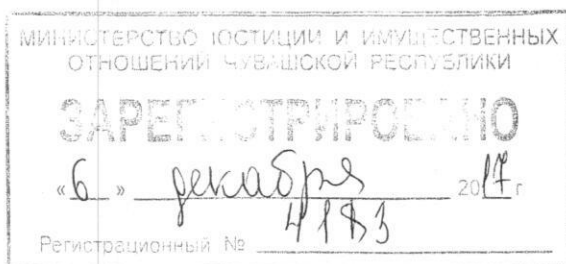 МИНИСТЕРСТВО ЮСТИЦИИ И ИМУЩЕСТВЕННЫХ
ОТНОШЕНИЙ ЧУВАШСКОЙ РЕСПУБЛИКИ
ЗАРЕГИСТРИРОВАНО
«6» декабря 2017 г
Регистрационный № 4183